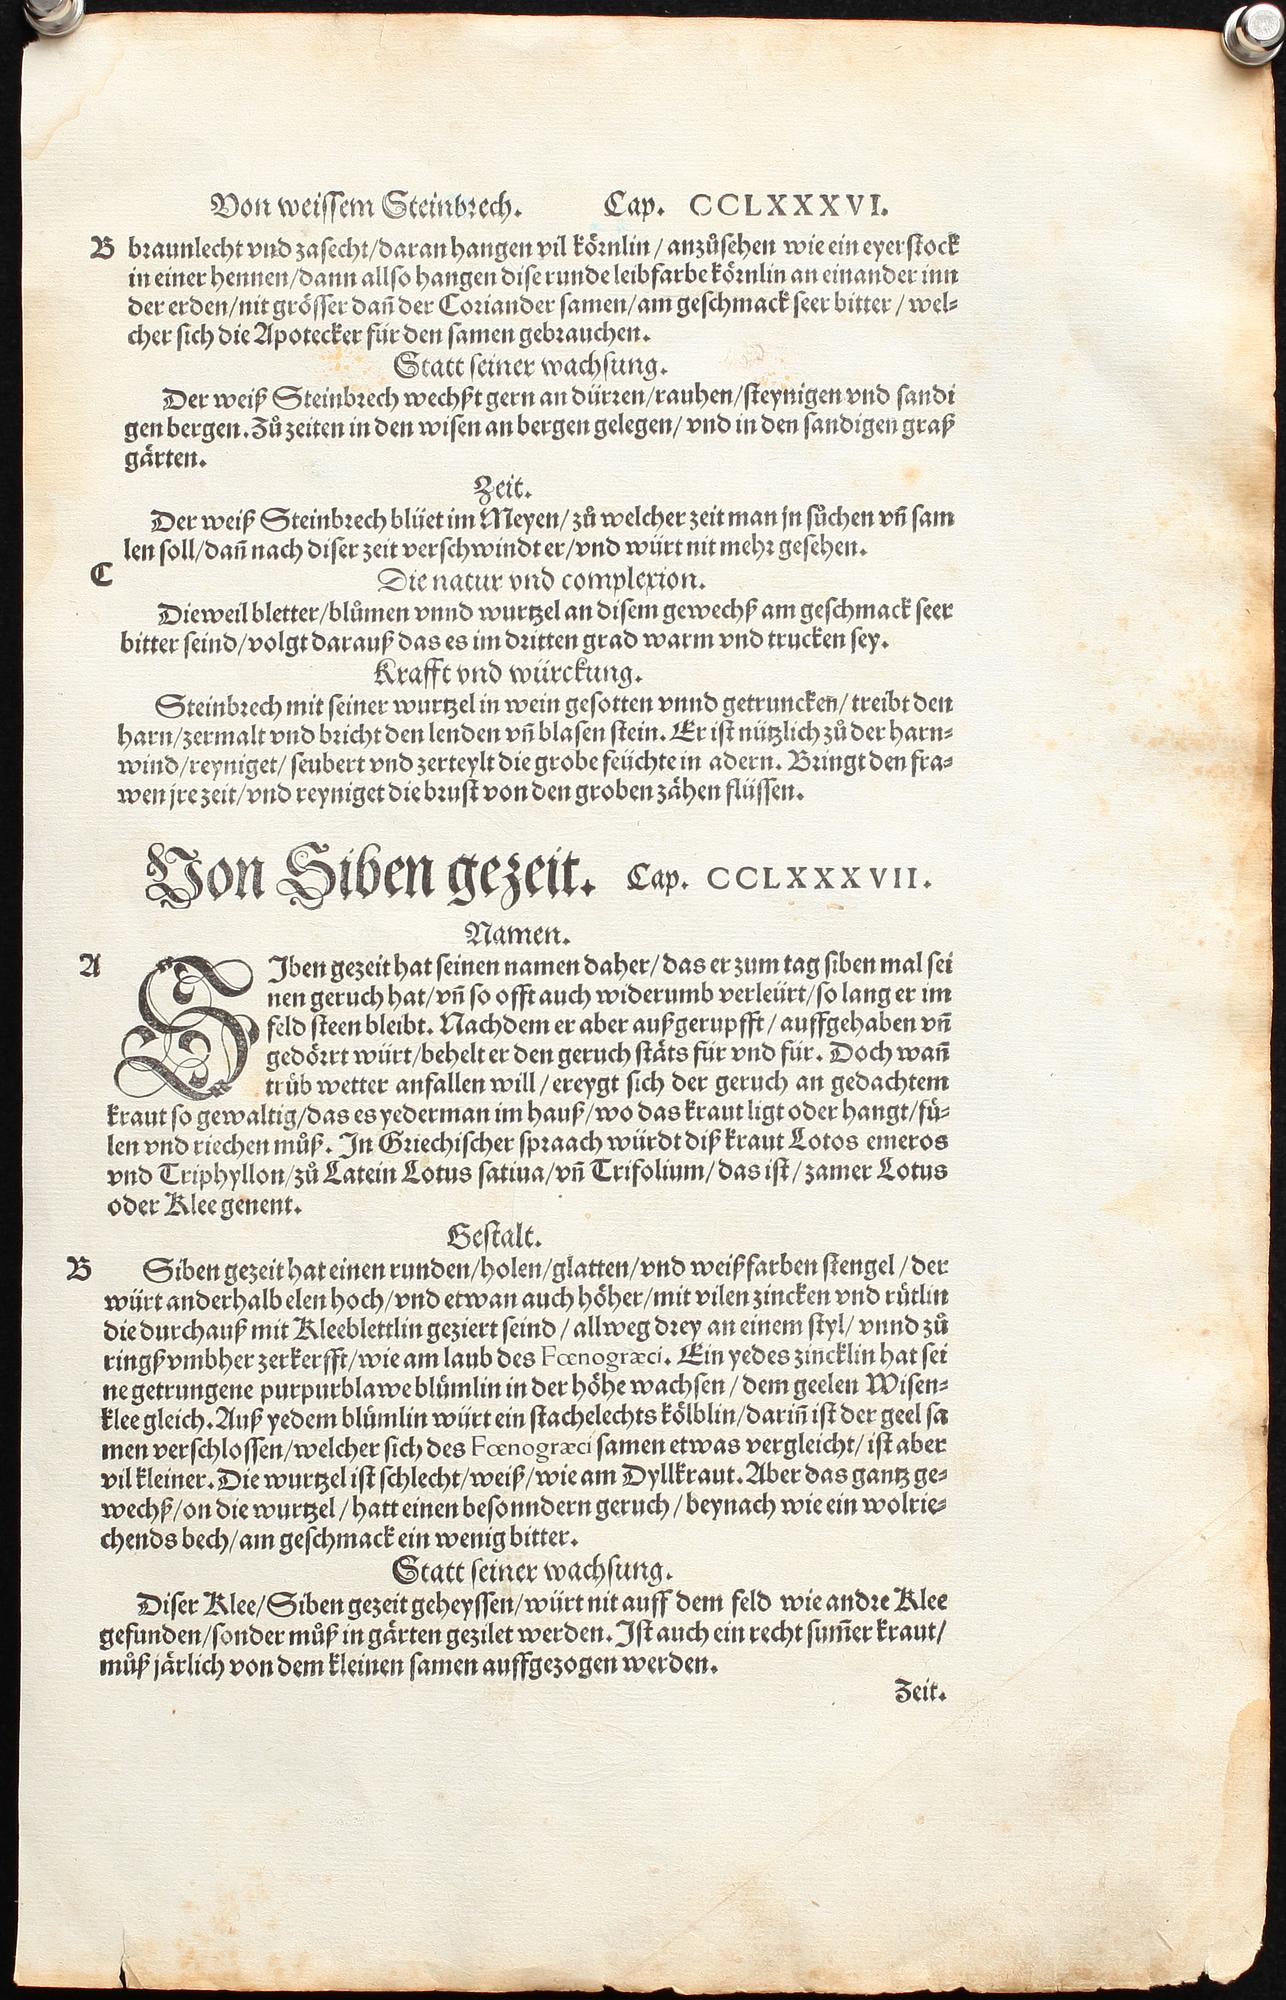 Von weissem Steinbrech. Cap. CCLXXXVI.
B braunlecht vnd zasecht/daran hangen vil körnlin/ anzůsehen wie ein eyerstock
in einer hennen/dann allso hangen dise runde leibfarbe körnlin an einander inn
der erden/nit grösser dañ der Coriander samen/am geschmack seer bitter/ wel-
cher sich die Apotecker für den samen gebrauchen.
Statt seiner wachsung.
Der weiß Steinbrech wechßt gern an dürren/rauhen/steynigen vnd sandi
gen bergen. Zů zeiten in den wisen an bergen gelegen/ vnd in den sandigen graß
gärten.
Zeit.
Der weiß Steinbrech blüet im Meyen/ zů welcher zeit man jn sůchen vñ sam
len soll/dañ nach diser zeit verschwindt er/vnd würt nit mehr gesehen.
C Die natur vnd complexion.
Dieweil bletter/blůmen vnnd wurtzel an disem gewechß am geschmack seer
bitter seind/volgt darauß das es im dritten grad warm vnd trucken sey.
Krafft vnd würckung.
Steinbrech mit seiner wurtzel in wein gesotten vnnd getruncken/ treibt den
harn/zermalt vnd bricht den lenden vñ blasen stein. Er ist nützlich zů der harn-
wind/reyniget/ seubert vnd zerteylt die grobe feüchte in adern. Bringt den fra-
wen jre zeit/vnd reyniget die brust von den groben zähen flüssen.
Von Siben gezeit. Cap. CCLXXXVII.
Namen.
A SIben gezeit hat seinen namen daher/ das er zum tag siben mal sei
nen geruch hat/vñ so offt auch widerumb verleürt/so lang er im
feld steen bleibt. Nachdem er aber außgerupfft/ auffgehaben vñ
gedörrt würt/behelt er den geruch stäts für vnd für. Doch wañ
trüb wetter anfallen will/ereygt sich der geruch an gedachtem
kraut so gewaltig/das es yederman im hauß/wo das kraut ligt oder hangt/fü-
len vnd riechen můß. In Griechischer spraach würdt diß kraut Lotos emeros
vnd Triphyllon/zů Latein Lotus satiua/vñ Trifolium/das ist/zamer Lotus
oder Klee genent.
Gestalt.
B Siben gezeit hat einen runden/holen/glatten/vnd weißfarben stengel/der
würt anderhalb elen hoch/vnd etwan auch höher/mit vilen zincken vnd rütlin
die durchauß mit Kleeblettlin geziert seind/ allweg drey an einem styl/ vnnd zů
ringßvmbher zerkerfft/wie am laub des Fœnogræci. Ein yedes zincklin hat sei
ne getrungene purpurblawe blümlin in der höhe wachsen/ dem geelen Wisen-
klee gleich. Auß yedem blümlin würt ein stachelechts kölblin/dariñ ist der geel sa
men verschlossen/welcher sich des Fœnogræci samen etwas vergleicht/ ist aber
vil kleiner. Die wurtzel ist schlecht/weiß/wie am Dyllkraut. Aber das gantz ge-
wechß/on die wurtzel/ hatt einen besonndern geruch/beynach wie ein wolrie-
chends bech/am geschmack ein wenig bitter.
Statt seiner wachsung.
Diser Klee/Siben gezeit geheyssen/würt nit auff dem feld wie andre Klee
gefunden/sonder můß in gärten gezilet werden. Ist auch ein recht sum̃er kraut/
můß järlich von dem kleinen samen auffgezogen werden.
Zeit.